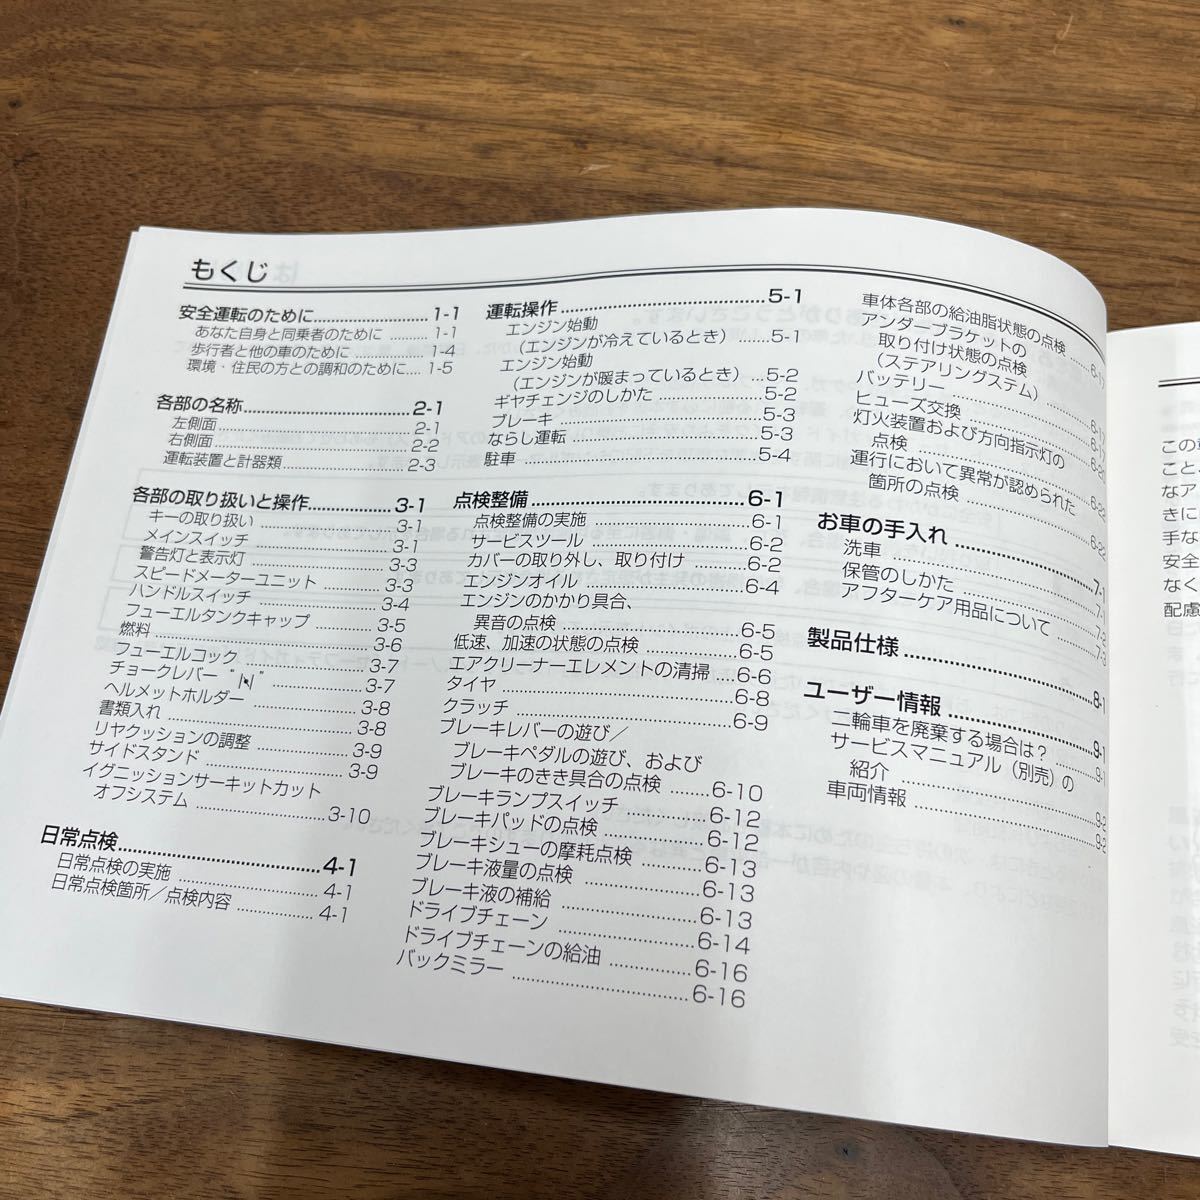 もくじ
安全運転のために 1-1
あなた自身と同乗者のために 1-1
歩行者と他の車のために 1-4
環境・住民の方との調和のために 1-5
各部の名称 2-1
左側面 2-1
右側面 2-2
運転装置と計器類 2-3
各部の取り扱いと操作 3-1
キーの取り扱い 3-1
メインスイッチ 3-1
警告灯と表示灯 3-3
スピードメーターユニット 3-3
ハンドルスイッチ 3-4
フューエルタンクキャップ 3-5
燃料 3-6
フューエルコック 3-7
チョークレバー 3-7
ヘルメットホルダー 3-8
書類入れ 3-8
リヤクッションの調整 3-9
サイドスタンド 3-9
イグニッションサーキットカット
オフシステム 3-10
日常点検 4-1
日常点検の実施 4-1
日常点検箇所／点検内容 4-1
運転操作 5-1
エンジン始動
（エンジンが冷えているとき） 5-1
エンジン始動
（エンジンが暖まっているとき） 5-2
ギヤチェンジのしかた 5-2
ブレーキ 5-3
ならし運転 5-3
駐車 5-4
点検整備 6-1
点検整備の実施 6-1
サービスツール 6-2
カバーの取り外し、取り付け 6-2
エンジンオイル 6-4
エンジンのかかり具合、
異音の点検 6-5
低速、加速の状態の点検 6-5
エアクリーナーエレメントの清掃 6-6
タイヤ 6-8
クラッチ 6-9
ブレーキレバーの遊び／
ブレーキペダルの遊び、および
ブレーキのきき具合の点検 6-10
ブレーキランプスイッチ 6-12
ブレーキパッドの点検 6-12
ブレーキシューの摩耗点検 6-13
ブレーキ液量の点検 6-13
ブレーキ液の補給 6-13
ドライブチェーン 6-14
ドライブチェーンの給油 6-16
バックミラー 6-16
車体各部の給油脂状態の点検 6-17
アンダーブラケットの
取り付け状態の点検
（ステアリングステム） 6-17
バッテリー 6-17
ヒューズ交換 6-20
灯火装置および方向指示灯の
点検 6-22
運行において異常が認められた
箇所の点検 6-22
お車の手入れ 7-1
洗車 7-1
保管のしかた 7-3
アフターケア用品について 7-3
製品仕様 8-1
ユーザー情報 9-1
二輪車を廃棄する場合は？ 9-1
サービスマニュアル（別売）の
紹介 9-2
車両情報 9-2
こと
なア
きに
手な
安全
なく
配慮